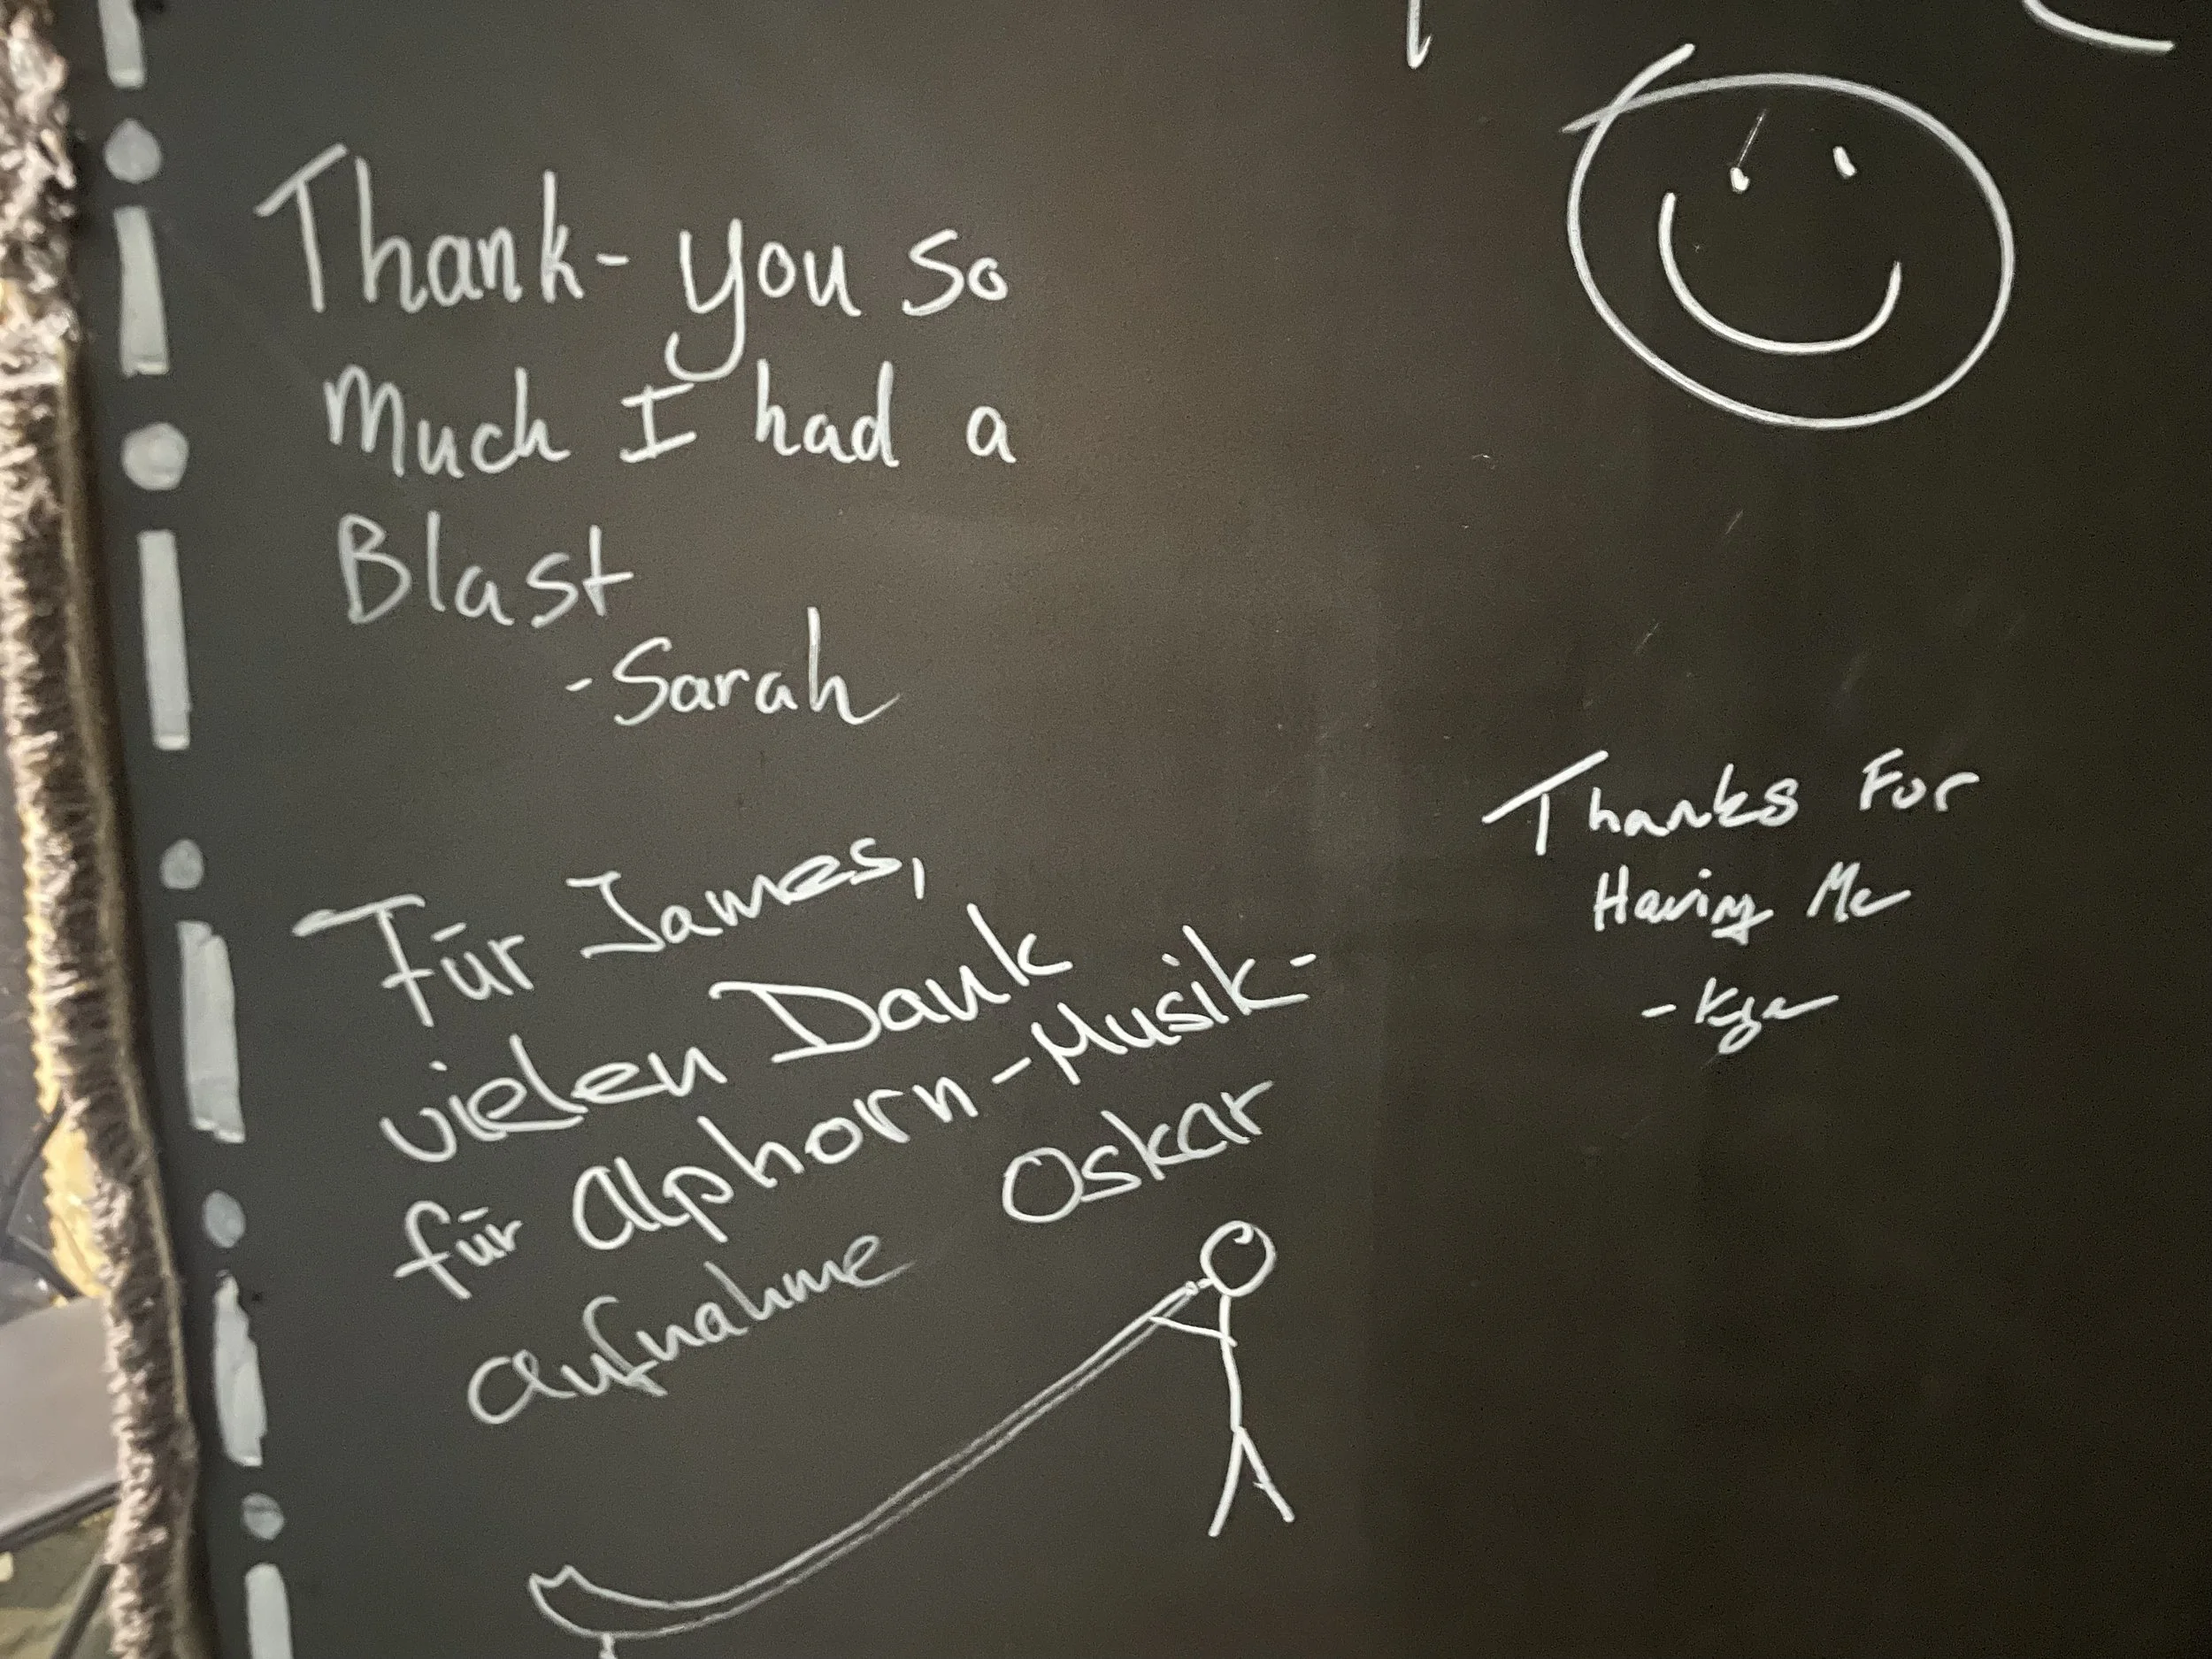 Thank-you so
Much I had a
Blast
-Sarah
Für James,
vielen Dank
für Alphorn-Musik-
aufnahme Oskar
Thanks For
Having Me